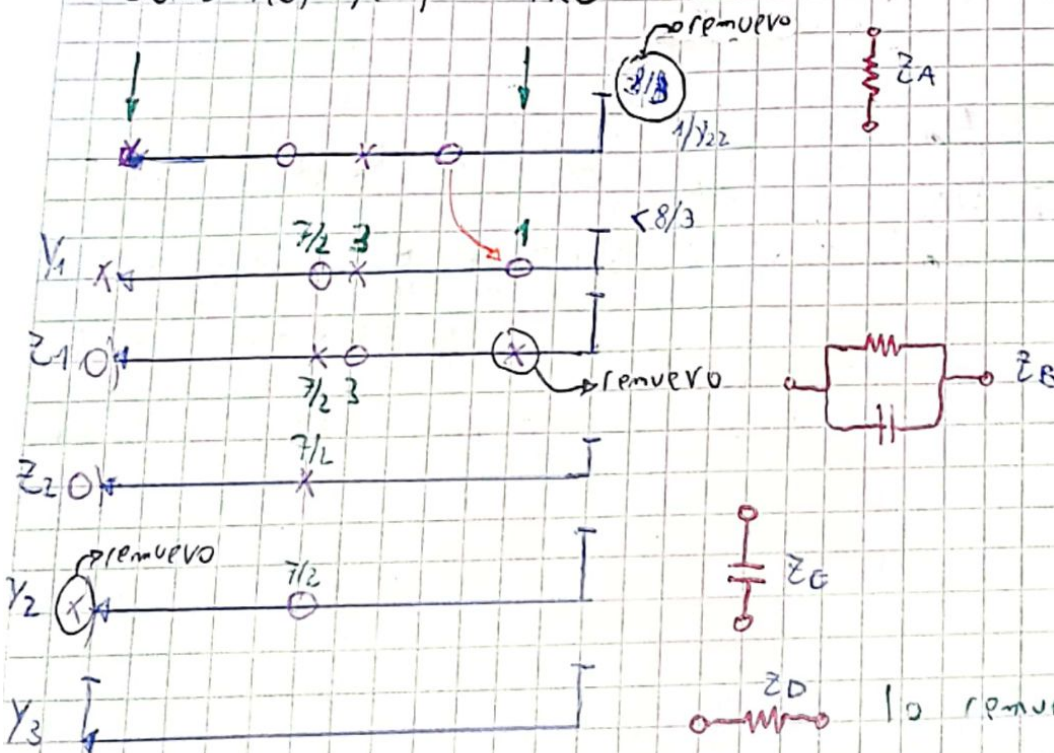 remuevo
8/3
1/Y22
ZA
<8/3
Y1 7/2 3 1
Z1 7/2 3
remuevo
ZB
Z2 7/2
remuevo
Y2 7/2
ZC
Y3
ZD
lo remu